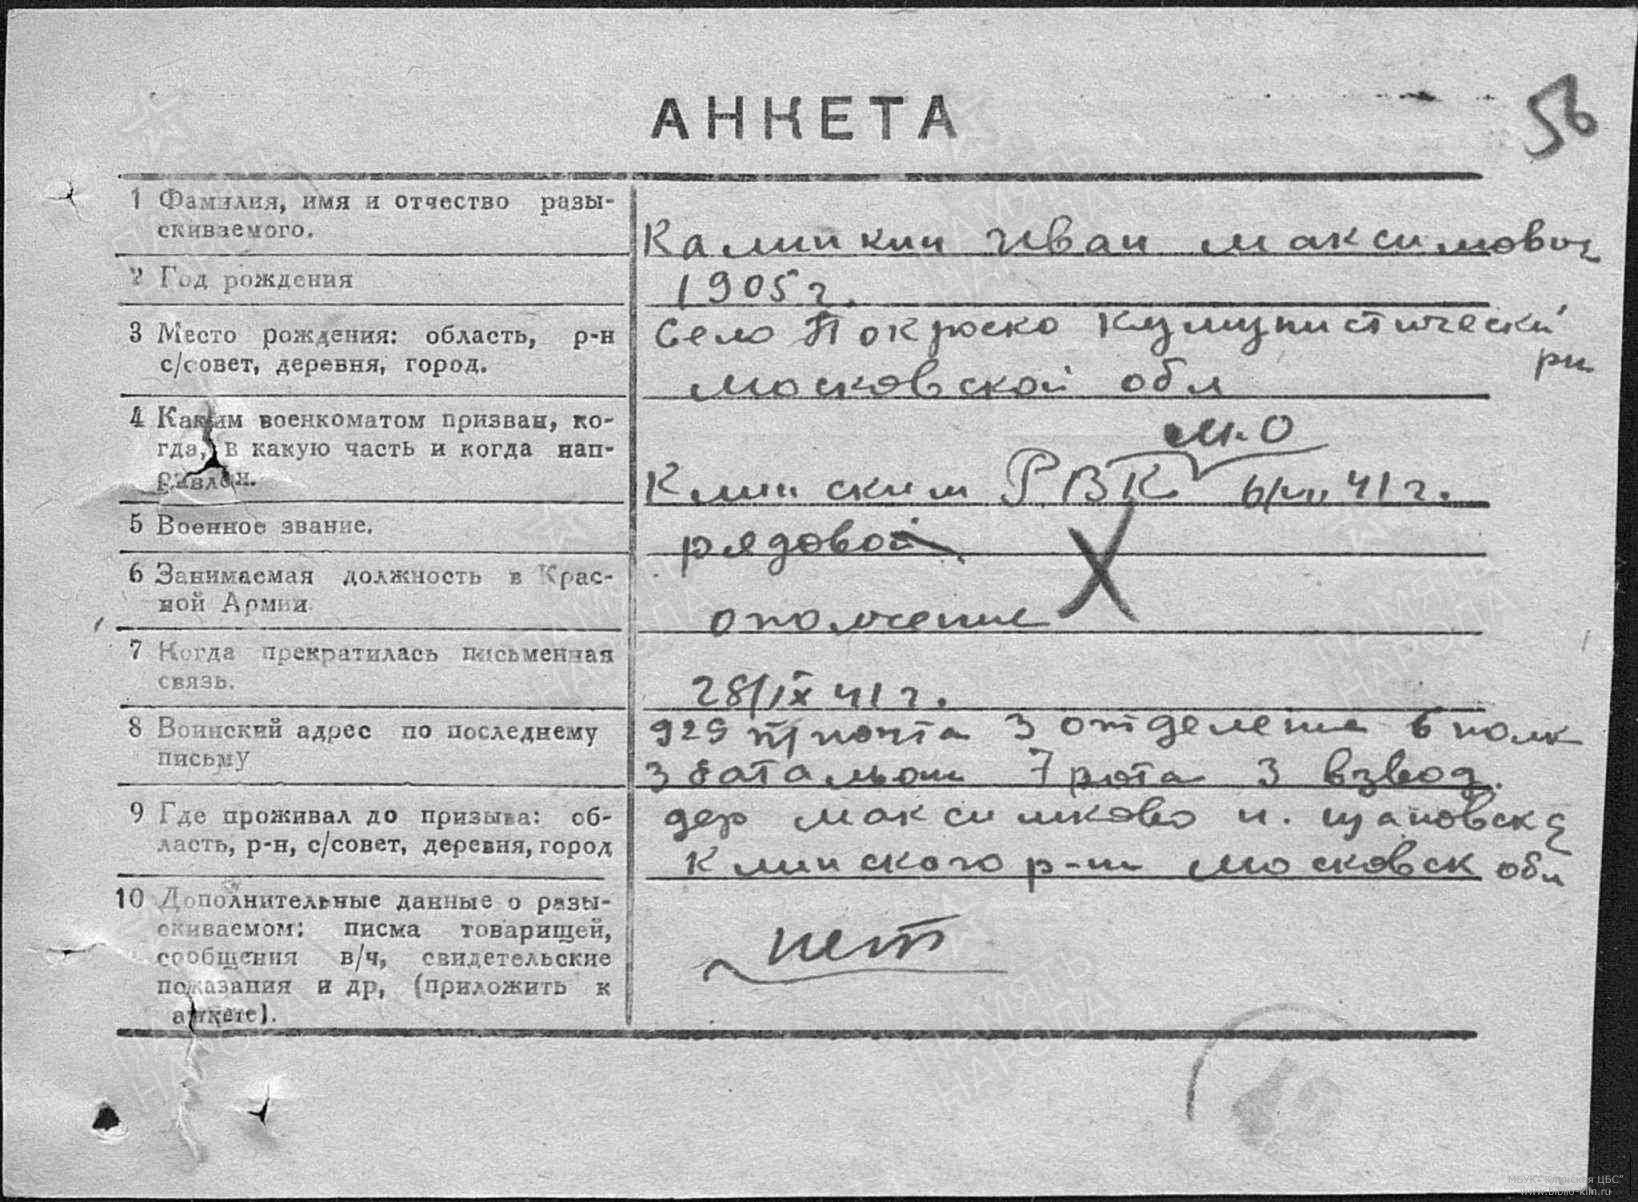 56
АНКЕТА
1 Фамилия, имя и отчество разы-
скиваемого.
Калинкин Иван Максимович
2 Год рождения
1905 г.
3 Место рождения: область, р-н
с/совет, деревня, город.
Село Покроско Кумунистически
рн
Московской обл
4 Каким военкоматом призван, ко-
гда, в какую часть и когда нап-
равлен.
М.О
Клинским РВК 6/VII 41 г.
5 Военное звание.
рядовой
6 Занимаемая должность в Крас-
ной Армии
ополчение
7 Когда прекратилась письменная
связь.
28/IX 41 г.
8 Воинский адрес по последнему
письму
929 п/почта 3 отделение 6 полк
3 батальон 7 рота 3 взвод.
9 Где проживал до призыва: об-
ласть, р-н, с/совет, деревня, город
дер Максимково
Клинского р-н Московск обл
10 Дополнительные данные о разы-
скиваемом: писма товарищей,
сообщения в/ч, свидетельские
показания и др, (приложить к
анкете).
нет
МБУК "Клинская ЦБС"
www.biblio-klin.ru